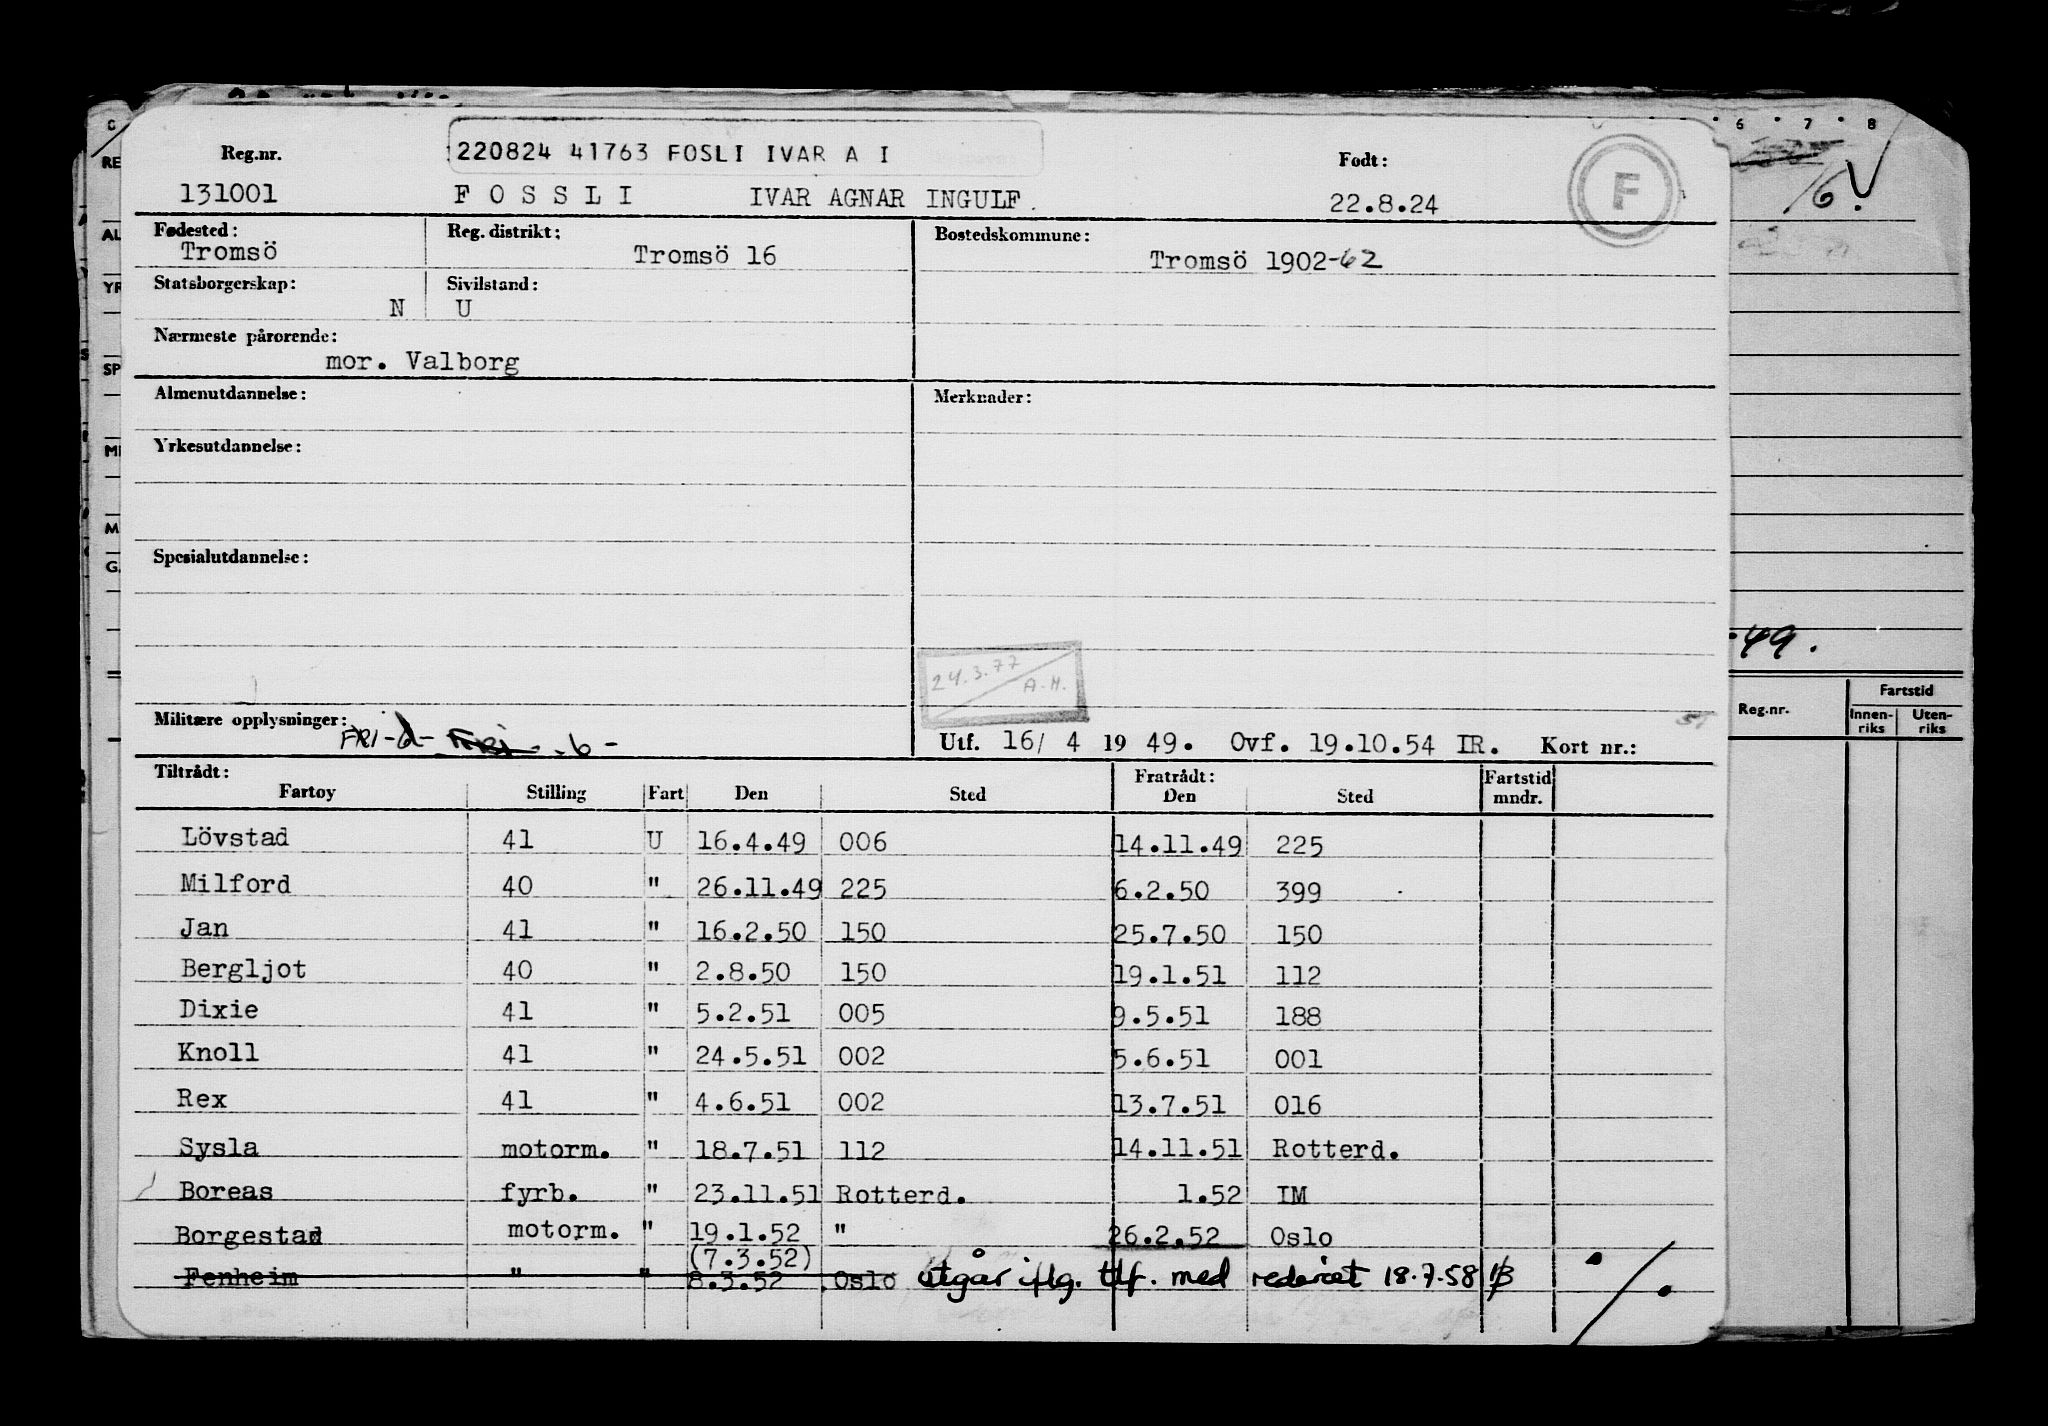 Reg.nr. 220824 41763 FOSLI IVAR A I Født:
131001 F O S S L I IVAR AGNAR INGULF. 22.8.24
F
Fødested: Reg. distrikt: Bostedskommune:
Tromsö Tromsö 16 Tromsö 1902-62
Statsborgerskap: Sivilstand:
N U
Nærmeste pårørende:
mor. Valborg
Almenutdannelse: Merknader:
Yrkesutdannelse:
Spesialutdannelse:
24.3.77
A.H.
Militære opplysninger: FRI-d- FRI -b-
Utf. 16/ 4 19 49. Ovf. 19.10.54 IR. Kort nr.:
Tiltrådt: Fratrådt: Fartstid
Fartøy Stilling Fart Den Sted Den Sted mndr.
Lövstad 41 U 16.4.49 006 14.11.49 225
Milford 40 " 26.11.49 225 6.2.50 399
Jan 41 " 16.2.50 150 25.7.50 150
Bergljot 40 " 2.8.50 150 19.1.51 112
Dixie 41 " 5.2.51 005 9.5.51 188
Knoll 41 " 24.5.51 002 5.6.51 001
Rex 41 " 4.6.51 002 13.7.51 016
Sysla motorm. " 18.7.51 112 14.11.51 Rotterd.
Boreas fyrb. " 23.11.51 Rotterd. 1.52 IM
Borgestad motorm. " 19.1.52 " 26.2.52 Oslo
(7.3.52)
Fenheim " " 8.3.52 Oslo utgår iflg. tlf. med rederiet 18.7.58
6 7 8
16.
-49.
Reg.nr. Fartstid
Innen-riks Uten-riks
RE
AL
YR
SP
MI
M
G.